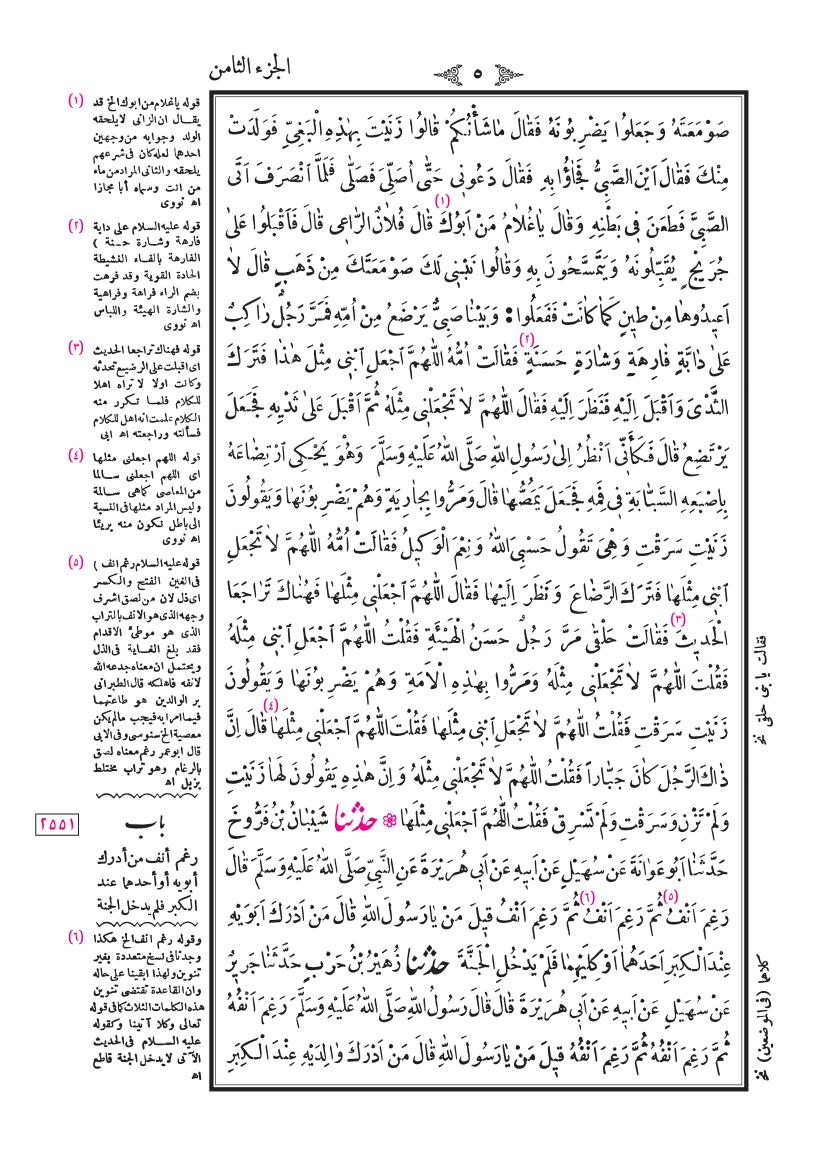 ٥
الجزء الثامن
صَوْمَعَتَهُ وَجَعَلُوا يَضْرِبُونَهُ فَقَالَ مَاشَأْنُكُمْ قَالُوا زَنَيْتَ بِهٰذِهِ الْبَغِيِّ فَوَلَدَتْ
مِنْكَ فَقَالَ اَيْنَ الصَّبِيُّ فَجَاؤُا بِهِ فَقَالَ دَعُونِي حَتَّى اُصَلِّيَ فَصَلَّى فَلَمَّا انْصَرَفَ اَتَى
الصَّبِيَّ فَطَعَنَ فِي بَطْنِهِ وَقَالَ يَاغُلَامُ مَنْ اَبُوكَ (١) قَالَ فُلَانٌ الرَّاعِي قَالَ فَاَقْبَلُوا عَلَى
جُرَيْجٍ يُقَبِّلُونَهُ وَيَتَمَسَّحُونَ بِهِ وَقَالُوا نَبْنِي لَكَ صَوْمَعَتَكَ مِنْ ذَهَبٍ قَالَ لَا
اَعِيدُوهَا مِنْ طِينٍ كَمَا كَانَتْ فَفَعَلُوا : وَبَيْنَا صَبِيٌّ يَرْضَعُ مِنْ اُمِّهِ فَمَرَّ رَجُلٌ رَاكِبٌ
عَلَى دَابَّةٍ فَارِهَةٍ وَشَارَةٍ حَسَنَةٍ (٢) فَقَالَتْ اُمُّهُ اللّٰهُمَّ اجْعَلِ ابْنِي مِثْلَ هٰذَا فَتَرَكَ
الثَّدْيَ وَاَقْبَلَ اِلَيْهِ فَنَظَرَ اِلَيْهِ فَقَالَ اللّٰهُمَّ لَا تَجْعَلْنِي مِثْلَهُ ثُمَّ اَقْبَلَ عَلَى ثَدْيِهِ فَجَعَلَ
يَرْتَضِعُ قَالَ فَكَأَنِّي اَنْظُرُ اِلَى رَسُولِ اللّٰهِ صَلَّى اللّٰهُ عَلَيْهِ وَسَلَّمَ وَهُوَ يَحْكِي ارْتِضَاعَهُ
بِاِصْبَعِهِ السَّبَّابَةِ فِي فَمِهِ فَجَعَلَ يَمُصُّهَا قَالَ وَمَرُّوا بِجَارِيَةٍ وَهُمْ يَضْرِبُونَهَا وَيَقُولُونَ
زَنَيْتِ سَرَقْتِ وَهِيَ تَقُولُ حَسْبِيَ اللّٰهُ وَنِعْمَ الْوَكِيلُ فَقَالَتْ اُمُّهُ اللّٰهُمَّ لَا تَجْعَلِ
ابْنِي مِثْلَهَا فَتَرَكَ الرَّضَاعَ وَنَظَرَ اِلَيْهَا فَقَالَ اللّٰهُمَّ اجْعَلْنِي مِثْلَهَا فَهُنَاكَ تَرَاجَعَا
الْحَدِيثَ (٣) فَقَالَتْ حَلْقَى مَرَّ رَجُلٌ حَسَنُ الْهَيْئَةِ فَقُلْتُ اللّٰهُمَّ اجْعَلِ ابْنِي مِثْلَهُ
فَقُلْتَ اللّٰهُمَّ لَا تَجْعَلْنِي مِثْلَهُ وَمَرُّوا بِهٰذِهِ الْاَمَةِ وَهُمْ يَضْرِبُونَهَا وَيَقُولُونَ
زَنَيْتِ سَرَقْتِ فَقُلْتُ اللّٰهُمَّ لَا تَجْعَلِ ابْنِي مِثْلَهَا فَقُلْتَ اللّٰهُمَّ اجْعَلْنِي مِثْلَهَا (٤) قَالَ اِنَّ
ذَاكَ الرَّجُلَ كَانَ جَبَّاراً فَقُلْتُ اللّٰهُمَّ لَا تَجْعَلْنِي مِثْلَهُ وَاِنَّ هٰذِهِ يَقُولُونَ لَهَا زَنَيْتِ
وَلَمْ تَزْنِ وَسَرَقْتِ وَلَمْ تَسْرِقْ فَقُلْتُ اللّٰهُمَّ اجْعَلْنِي مِثْلَهَا ❁ حَدَّثَنَا شَيْبَانُ بْنُ فَرُّوخَ
حَدَّثَنَا اَبُو عَوَانَةَ عَنْ سُهَيْلٍ عَنْ اَبِيهِ عَنْ اَبِي هُرَيْرَةَ عَنِ النَّبِيِّ صَلَّى اللّٰهُ عَلَيْهِ وَسَلَّمَ قَالَ
رَغِمَ اَنْفُ (٥) ثُمَّ رَغِمَ اَنْفُ (٦) ثُمَّ رَغِمَ اَنْفُ قِيلَ مَنْ يَارَسُولَ اللّٰهِ قَالَ مَنْ اَدْرَكَ اَبَوَيْهِ
عِنْدَ الْكِبَرِ اَحَدَهُمَا اَوْ كِلَيْهِمَا فَلَمْ يَدْخُلِ الْجَنَّةَ حَدَّثَنَا زُهَيْرُ بْنُ حَرْبٍ حَدَّثَنَا جَرِيرٌ
عَنْ سُهَيْلٍ عَنْ اَبِيهِ عَنْ اَبِي هُرَيْرَةَ قَالَ قَالَ رَسُولُ اللّٰهِ صَلَّى اللّٰهُ عَلَيْهِ وَسَلَّمَ رَغِمَ اَنْفُهُ
ثُمَّ رَغِمَ اَنْفُهُ ثُمَّ رَغِمَ اَنْفُهُ قِيلَ مَنْ يَارَسُولَ اللّٰهِ قَالَ مَنْ اَدْرَكَ وَالِدَيْهِ عِنْدَ الْكِبَرِ
(١) قوله ياغلام من ابوك الخ قد
يقال ان الزانى لا يلحقه
الولد وجوابه من وجهين
احدهما لعله كان فى شرعهم
يلحقه والثانى المراد من ماء
من انت وسماه أبا مجازا
اه نووى
(٢) قوله عليه السلام على دابة
فارهة وشارة حسنة )
الفارهة بالفاء النشيطة
الحادة القوية وقد فرهت
بضم الراء فراهة وفراهية
والشارة الهيئة واللباس
اه نووى
(٣) قوله فهناك تراجعا الحديث
اى اقبلت على الرضيع تحدثه
وكانت اولا لا تراه اهلا
للكلام فلما تكرر منه
الكلام علمت انه اهل للكلام
فسألته وراجعته اه ابى
(٤) قوله اللهم اجعلنى مثلها
اى اللهم اجعلنى سالما
من المعاصى كما هى سالمة
وليس المراد مثلها فى النسبة
الى باطل تكون منه بريئا
اه نووى
(٥) قوله عليه السلام رغم انف )
فى الغين الفتح والكسر
اى ذل لان من لصق اشرف
وجهه الذى هو الانف بالتراب
الذى هو موطئ الاقدام
فقد بلغ الغاية فى الذل
ويحتمل ان معناه جدعه الله
لانفه فاهلكه قال الطبرانى
بر الوالدين هو طاعتهما
فيما امرا به فيجب مالم يكن
معصية الخ سنوسى وفى الابى
قال ابو عمر رغم معناه لصق
بالرغام وهو تراب مختلط
بزبل اه
٢٥٥١
باب
رغم أنف من أدرك
أبويه أو أحدهما عند
الكبر فلم يدخل الجنة
(٦) وقوله رغم انف الخ هكذا
وجدنا فى نسخ متعددة بغير
تنوين ولهذا ابقينا على حاله
وان القاعدة تقتضى تنوين
هذه الكلمات الثلاث كما فى قوله
تعالى وكلا آتينا وكقوله
عليه السلام فى الحديث
الآتى لا يدخل الجنة قاطع
اه
فقالت يا بنى حلقى نخ
كلاهما (فى الموضعين) نخ